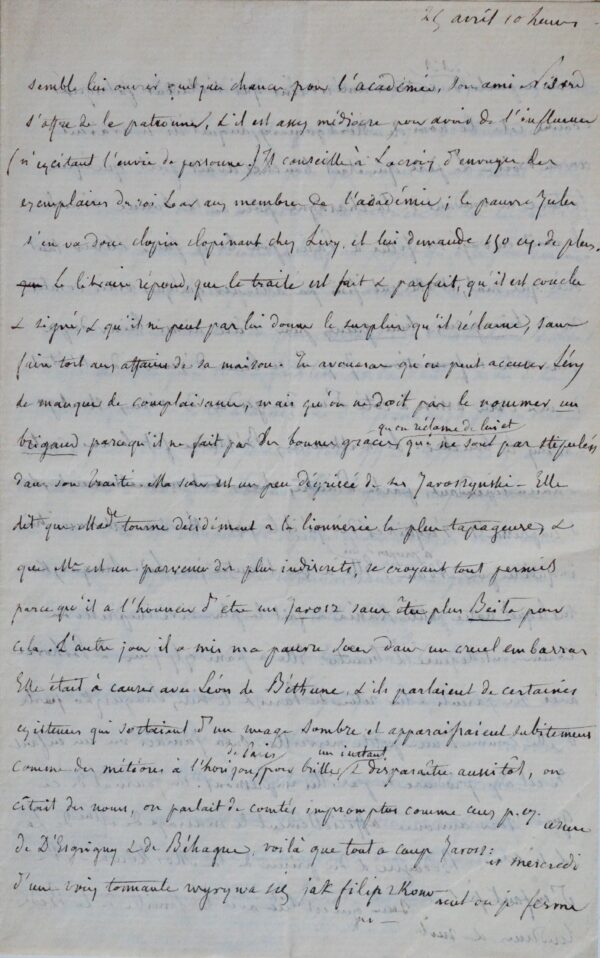 25 avril 10 heures
semble lui ouvrir quelque chance pour l'académie, son ami Nisard
s'offre de le patronner, & il est assez médiocre pour avoir de l'influence
(n'excitant l'envie de personne.) Il conseille à Lacroix d'envoyer des
exemplaires du roi Lear aux membres de l'académie; le pauvre Jules
s'en va donc clopin clopinant chez Levy, et lui demande 150 ex. de plus.
Le libraire répond, que le traité est fait & parfait, qu'il est conclu
& signé, & qu'il ne peut pas lui donner le surplus qu'il réclame, sans
faire tort aux affaires de sa maison. Tu avoueras qu'on peut accuser Lévy
de manque de complaisance, mais qu'on ne doit pas le nommer un
qu'on réclame de lui et
brigand parcequ'il ne fait pas des bonnes graces, qui ne sont pas stipulées
dans son traité. Ma sœur est un peu dégrisée de ses Jaroszynski - Elle
dit que Made tourne décidément a la lionnerie la plus tapageuse, &
que Mr est un parvenu des plus indiscrets, se croyant tout permis
parce qu'il a l'honneur d'être un Jarosz sans être plus Beita pour
cela. L'autre jour il a mis ma pauvre sœur dans un cruel embarras
Elle était à causer avec Léon de Béthune, & ils parlaient de certaines
existences qui sortaient d'un nuage sombre et apparaissaient subitement
de Paris un instant
comme des météores à l'horizon, pour briller & disparaître aussitôt, on
citait des noms, on parlait de comtes impromptus comme ceux p. ex.
de D'Esgrigny & de Béhague, voilà que tout a coup Jarosz:
d'une voix tonnante wyrywa się jak filip z Kono
pi —
mercredi
où je ferme